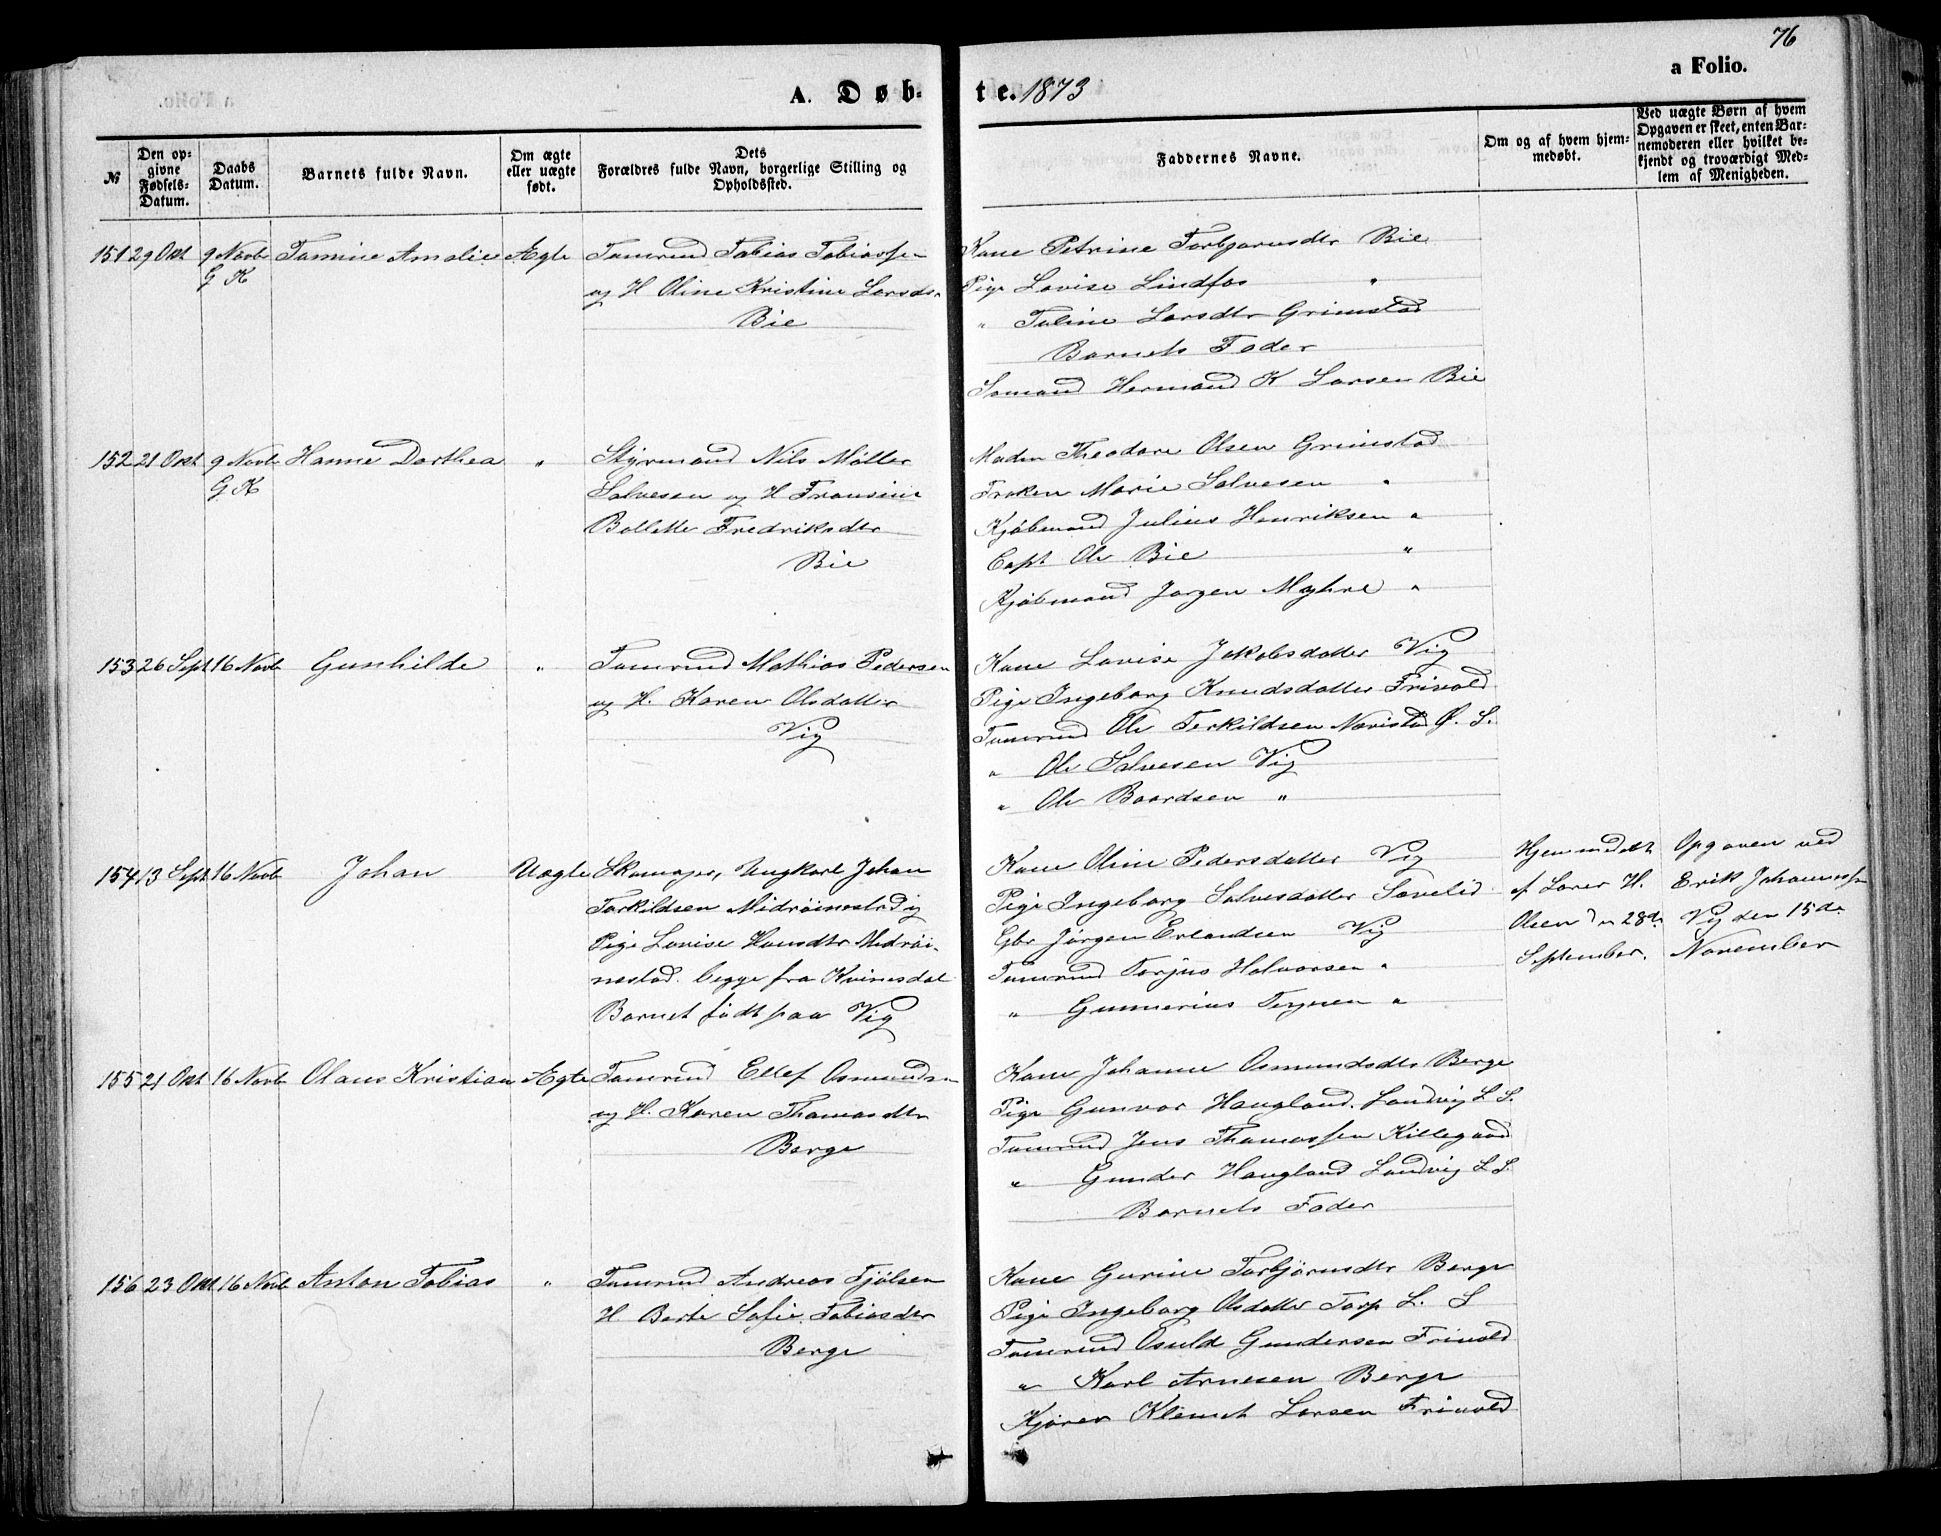 76
a Folio.
A. Døb-
te. 1873
№
Den op-
givne
Fødsels-
Datum.
Daabs
Datum.
Barnets fulde Navn.
Om ægte
eller uægte
født.
Dets
Forældres fulde Navn, borgerlige Stilling og
Opholdssted.
Faddernes Navne.
Om og af hvem hjem-
medøbt.
Ved uægte Børn af hvem
Opgaven er skeet, enten Bar-
nemoderen eller hvilket be-
kjendt og troværdigt Med-
lem af Menigheden.
151 29 Okt 9 Novb Tomine Amalie Ægte
G K
Tømrmd Tobias Tobiassen
og H Oline Kristine Larsdr
Bie
Kone Petrine Torbjørnsdtr Bie
Pige Lovise Lindfos "
" Taline Larsdtr Grimstad
Barnets Fader
Sømand Hermand K Larsen Bie
152 21 Okt 9 Novb Hanne Dorthea "
G K
Styrmand Nils Møller
Salvesen og H Fransine
Bollette Fredriksdtr
Bie
Madm Theodore Olsen Grimstad
Frøken Marie Salvesen "
Kjøbmand Julius Henriksen "
Capt Ole Bie "
Kjøbmand Jørgen Myhre "
153 26 Sept 16 Novb Gunhilde "
Tømrmd Mathias Pedersen
og H. Karen Olsdatter
Vig
Kone Lovise Jakobsdatter Vig
Pige Ingeborg Knudsdatter Frivold
Tømrmd Ole Terkildsen Navistad Ø. S.
" Ole Salvesen Vig
" Ole Baardsen "
154 13 Sept 16 Novb Johan Uægte
Skomager, Ungkarl Johan
Torkildsen Midrøinestad og
Pige Lovise Hansdtr Medrøi-
nestad. begge fra Kvinesdal
Barnet født paa Vig
Kone Oline Pedersdatter Vig
Pige Ingeborg Salvesdatter Sævelid
Gbr Jørgen Erlandsen Vig
Tømrmd Torjus Halvorsen "
" Gunnerius Terjesen "
Hjemmedøbt
af Lærer H.
Olsen den 28de
September.
Opgaven ved
Erik Johannessen
Vig den 15de
November
155 21 Okt 16 Novb Olaus Kristian Ægte
Tømrmd Ellef Osmundsen
og H. Karen Thomasdtr
Berge
Kone Johanne Osmundsdtr Berge
Pige Gunvor Haugland. Landvig L S.
Tømrmd Jens Thomassen Killegaard
" Gunder Haugland Landvig L S.
Barnets Fader
156 23 Okt 16 Novb Anton Tobias "
Tømrmd Andreas Fjølsen
H Berte Sofie Tobiasdtr
Berge
Kone Gurine Torbjørnsdtr Berge
Pige Ingeborg Olsdatter Torp L. S
Tømrmd Osuld Gundersen Frivold
" Karl Arnesen Berge
Kjører Klemet Larsen Frivold